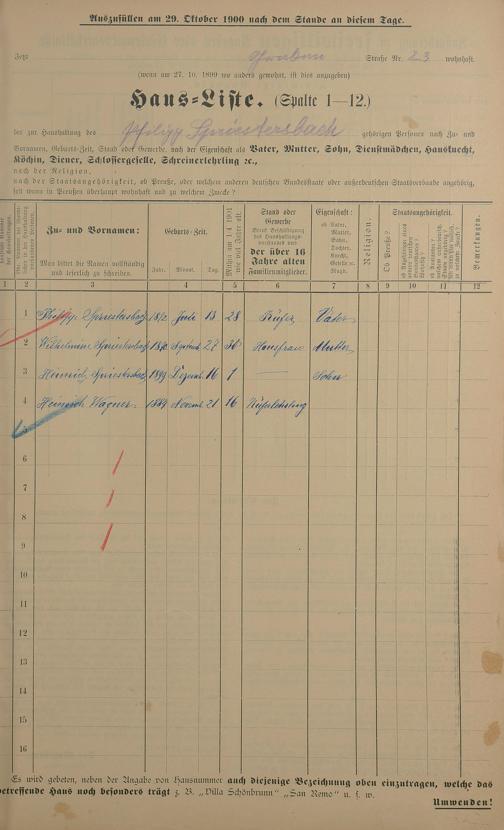 Auszufüllen am 29. Oktober 1900 nach dem Stande an diesem Tage.
Jetzt Straße Nr. 23 wohnhaft.
(wenn am 27. 10. 1899 wo anders gewohnt, ist dies anzugeben)
Haus-Liste. (Spalte 1—12.)
der zur Haushaltung des Philipp Spriestersbach gehörigen Personen nach Zu- und
Vornamen, Geburts-Zeit, Stand oder Gewerbe, nach der Eigenschaft als Vater, Mutter, Sohn, Dienstmädchen, Hausknecht,
Köchin, Diener, Schlossergeselle, Schreinerlehrling ꝛc.,
nach der Religion,
nach der Staatsangehörigkeit, ob Preuße, oder welchem anderen deutschen Bundesstaate oder außerdeutschen Staatsverbande angehörig,
seit wann in Preußen überhaupt wohnhaft und zu welchem Zweck?
Zu- und Vornamen:
Man bittet die Namen vollständig
und leserlich zu schreiben.
Geburts-Zeit.
Jahr. Monat. Tag.
Mithin am 1/4 1901
Stand oder
Gewerbe
der über 16
Jahre alten
Familienmitglieder.
Eigenschaft:
ob Vater,
Mutter,
Sohn,
Tochter,
Knecht,
Geselle u.
Magd.
Religion.
Staatsangehörigkeit.
Ob Preuße?
Bemerkungen.
1 2 3 4 5 6 7 8 9 10 11 12
1 Philipp Spriestersbach 13 28 Küfer Vater
2 Wilhelmine Spriestersbach 27 Hausfrau Mutter
3 Heinrich Spriestersbach 1899 Dezemb. 16 1 — Sohn
4 Heinrich Wagner 1884 Novemb. 21 16 Küferlehrling
5
6
7
8
9
10
11
12
13
14
15
16
Es wird gebeten, neben der Angabe von Hausnummer auch diejenige Bezeichnung oben einzutragen, welche das
betreffende Haus noch besonders trägt z. B. „Villa Schönbrunn" „San Remo" u. s. w.
Umwenden!